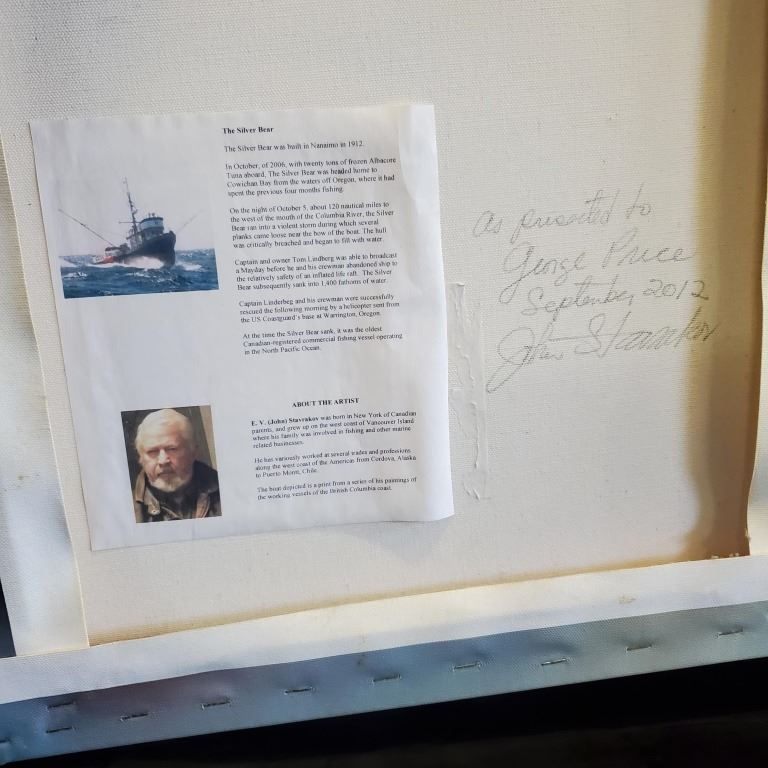 The Silver Bear
The Silver Bear was built in Nanaimo in 1912.
In October, of 2006, with twenty tons of frozen Albacore
Tuna aboard, The Silver Bear was headed home to
Cowichan Bay from the waters off Oregon, where it had
spent the previous four months fishing.
On the night of October 5, about 120 nautical miles to
the west of the mouth of the Columbia River, the Silver
Bear ran into a violent storm during which several
planks came loose near the bow of the boat. The hull
was critically breached and began to fill with water.
Captain and owner Tom Lindberg was able to broadcast
a Mayday before he and his crewman abandoned ship to
the relatively safety of an inflated life raft. The Silver
Bear subsequently sank into 1,400 fathoms of water.
Captain Linderbeg and his crewman were successfully
rescued the following morning by a helicopter sent from
the US Coastguard's base at Warrington, Oregon.
At the time the Silver Bear sank, it was the oldest
Canadian-registered commercial fishing vessel operating
in the North Pacific Ocean.
ABOUT THE ARTIST
E. V. (John) Stavrakov was born in New York of Canadian
parents, and grew up on the west coast of Vancouver Island
where his family was involved in fishing and other marine
related businesses.
He has variously worked at several trades and professions
along the west coast of the Americas from Cordova, Alaska
to Puerto Montt, Chile.
The boat depicted is a print from a series of his paintings of
the working vessels of the British Columbia coast.
as presented to
George Price
September, 2012
John Stavrakov